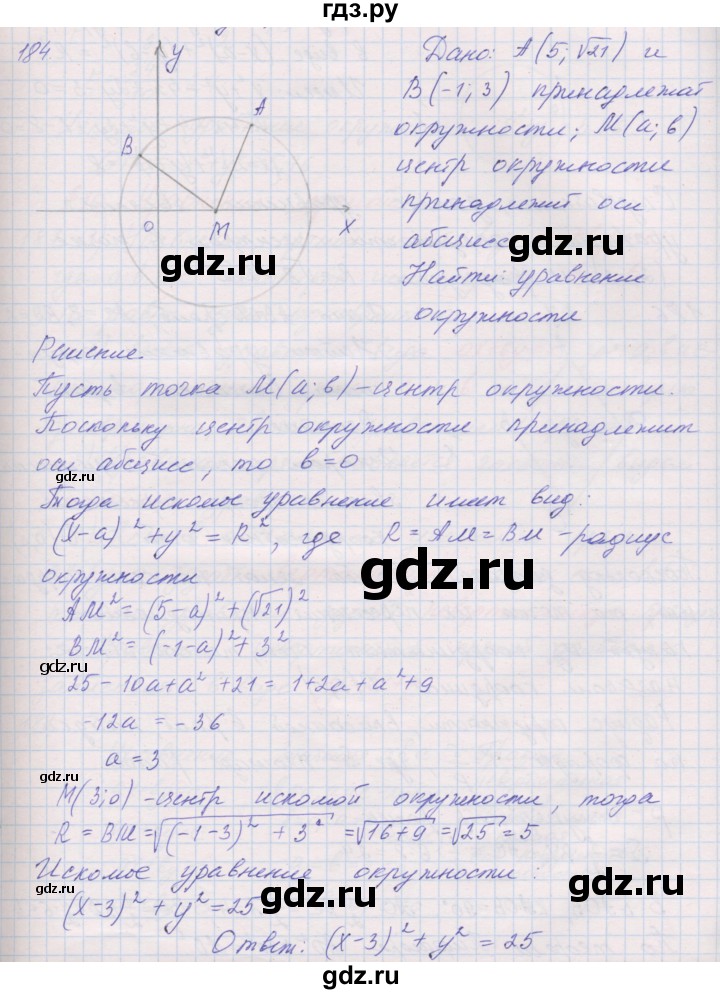 гдз.ру
184.
y
A
B
0
M
x
Дано: A(5; √21) и
B(-1; 3) принадлежат
окружности; M(a; b)
центр окружности
принадлежит оси
абсцисс
Найти: уравнение
окружности
gdz.ru
gdz.ru
Решение.
Пусть точка M(a; b) - центр окружности.
gdz.ru
Поскольку центр окружности принадлежит
оси абсцисс, то b=0
gdz.ru
gdz.ru
Тогда искомое уравнение имеет вид:
(x-a)² + y² = R², где R = AM = BM - радиус
окружности
gdz.ru
AM² = (5-a)² + (√21)²
BM² = (-1-a)² + 3²
gdz.ru
25 - 10a + a² + 21 = 1 + 2a + a² + 9
-12a = -36
gdz.ru
a = 3
gdz.ru
M(3; 0) - центр искомой окружности, тогда
R = BM = √(-1-3)² + 3² = √16+9 = √25 = 5
Искомое уравнение окружности:
gdz.ru
gdz.ru
(x-3)² + y² = 25
gdz.ru
Ответ: (x-3)² + y² = 25
gdz.ru
gdz.ru